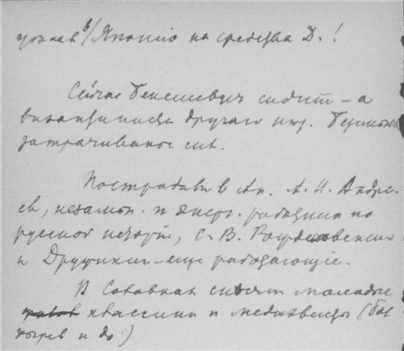 в/Японию на средства Д.!
Сейчас Бенешевич сидит – а
византиниста другого нет.
затрачивание сил.
Пострадали в Ак. А. И. Андре-
ев, незамен. и энерг. работник по
русской истории, С. В. Рождественский
и Дружинин – еще работающие.
В Соловках сидят молодые
классики и медиевисты (Бах
и др.)